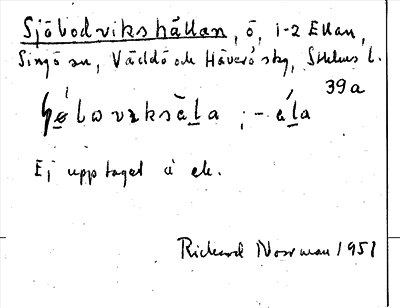 Sjöbodvikshällan, ö, i-2 Ellan,
Singö sn, Väddö och Häverö skg, Sthlms l.
39a
; - 
Ej upptaget å ek.
Rickard Norrman 1951